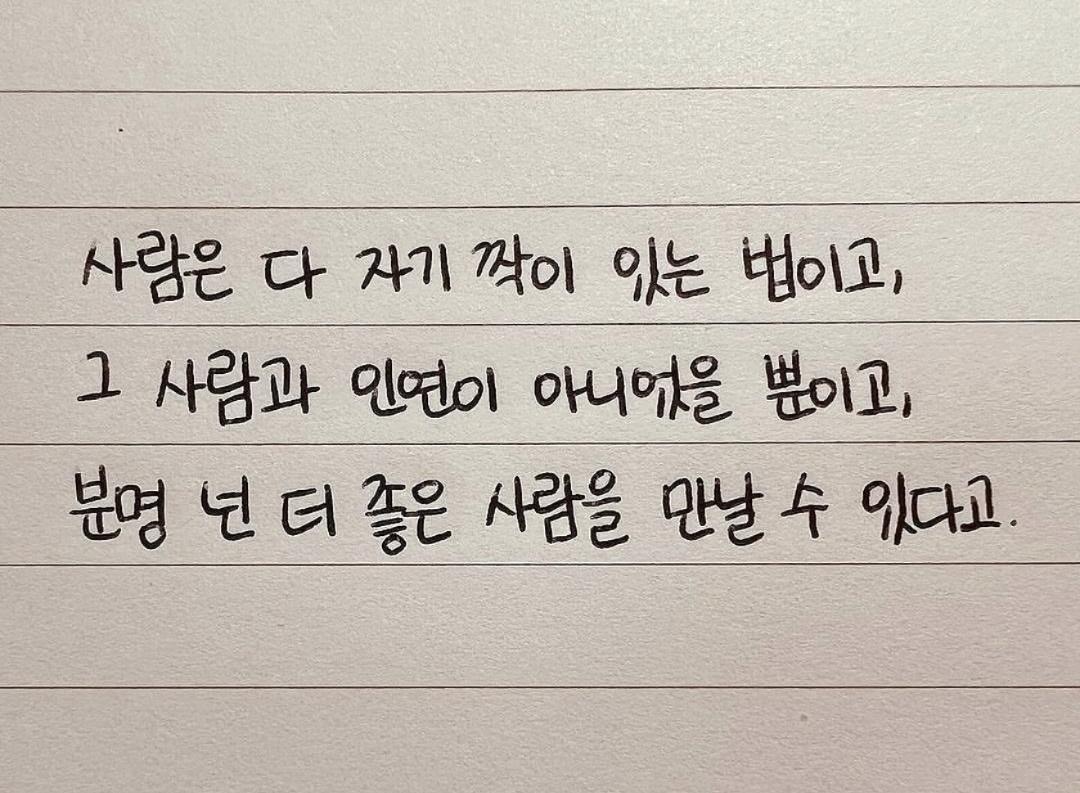 사람은 다 자기 짝이 있는 법이고,
그 사람과 인연이 아니었을 뿐이고,
분명 넌 더 좋은 사람을 만날 수 있다고.